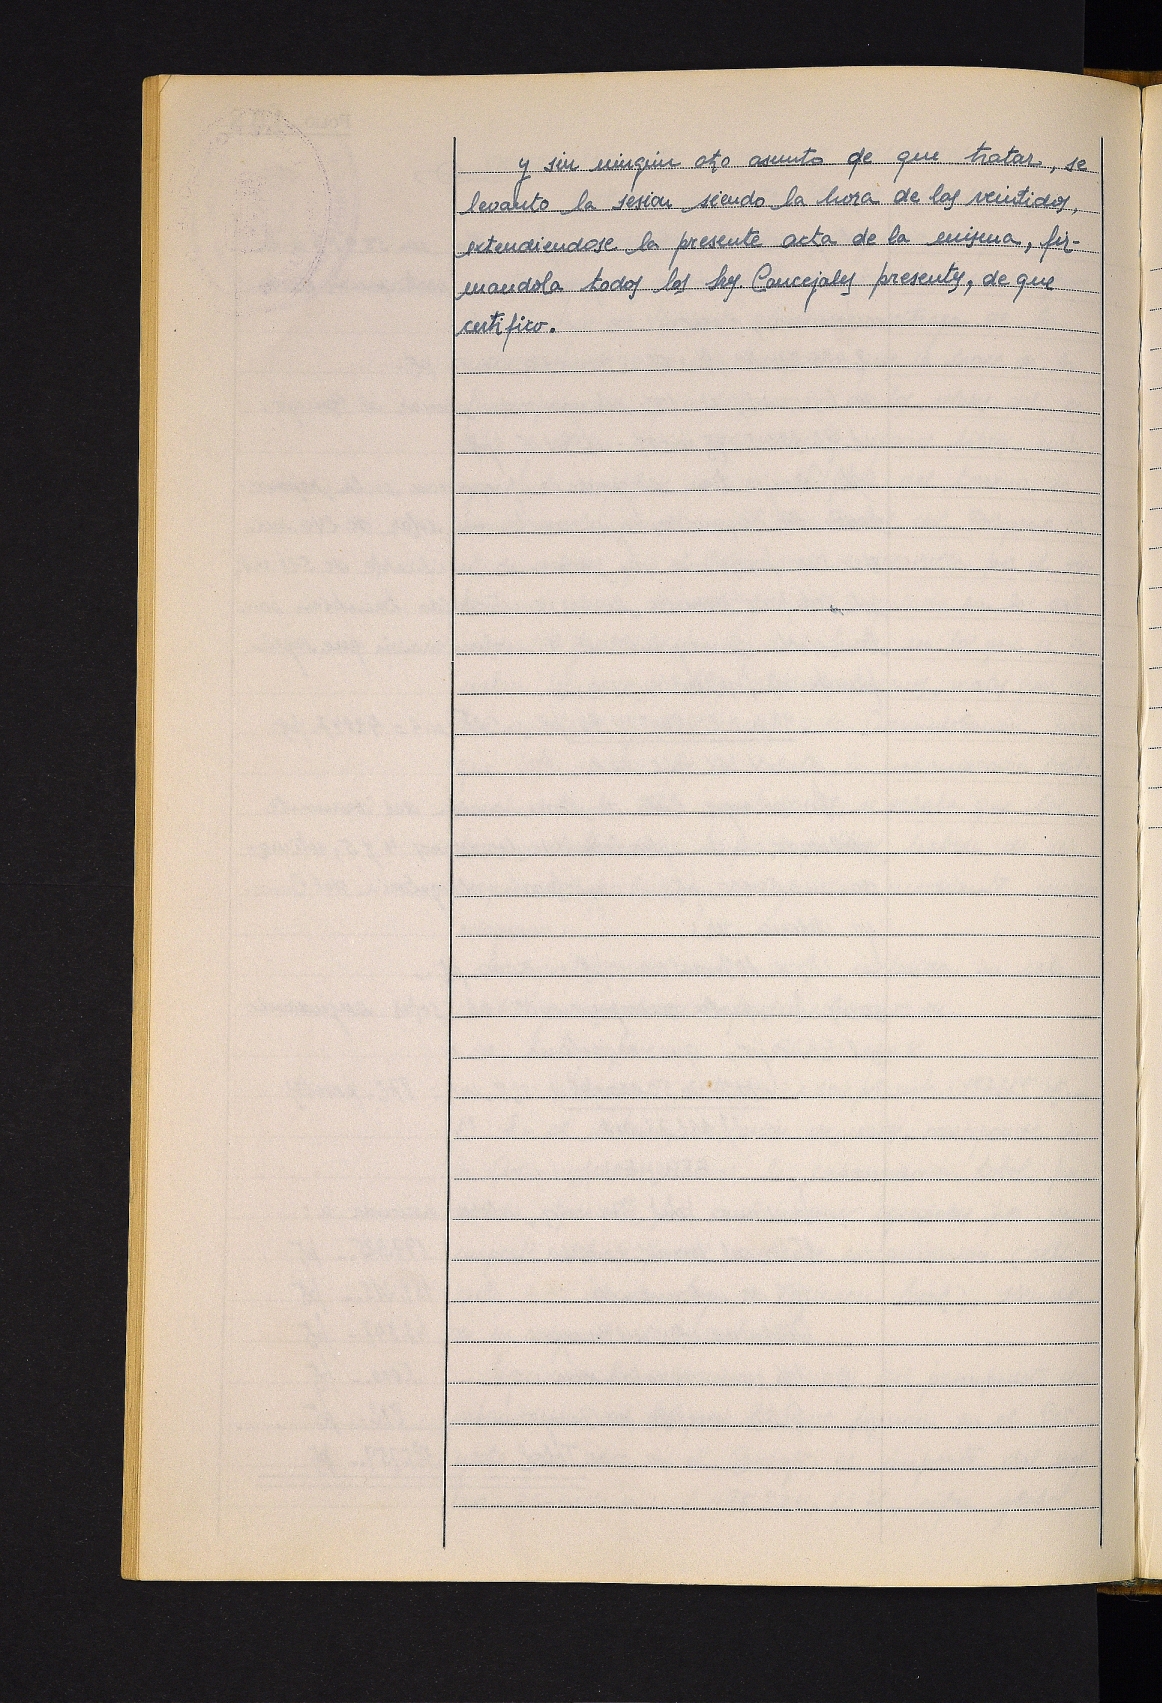 y sin ningun otro asunto de que tratar, se
levanto la sesion siendo la hora de las veintidos,
extendiendose la presente acta de la misma, fir-
mandola todos los Sres. Concejales presentes, de que
certifico.